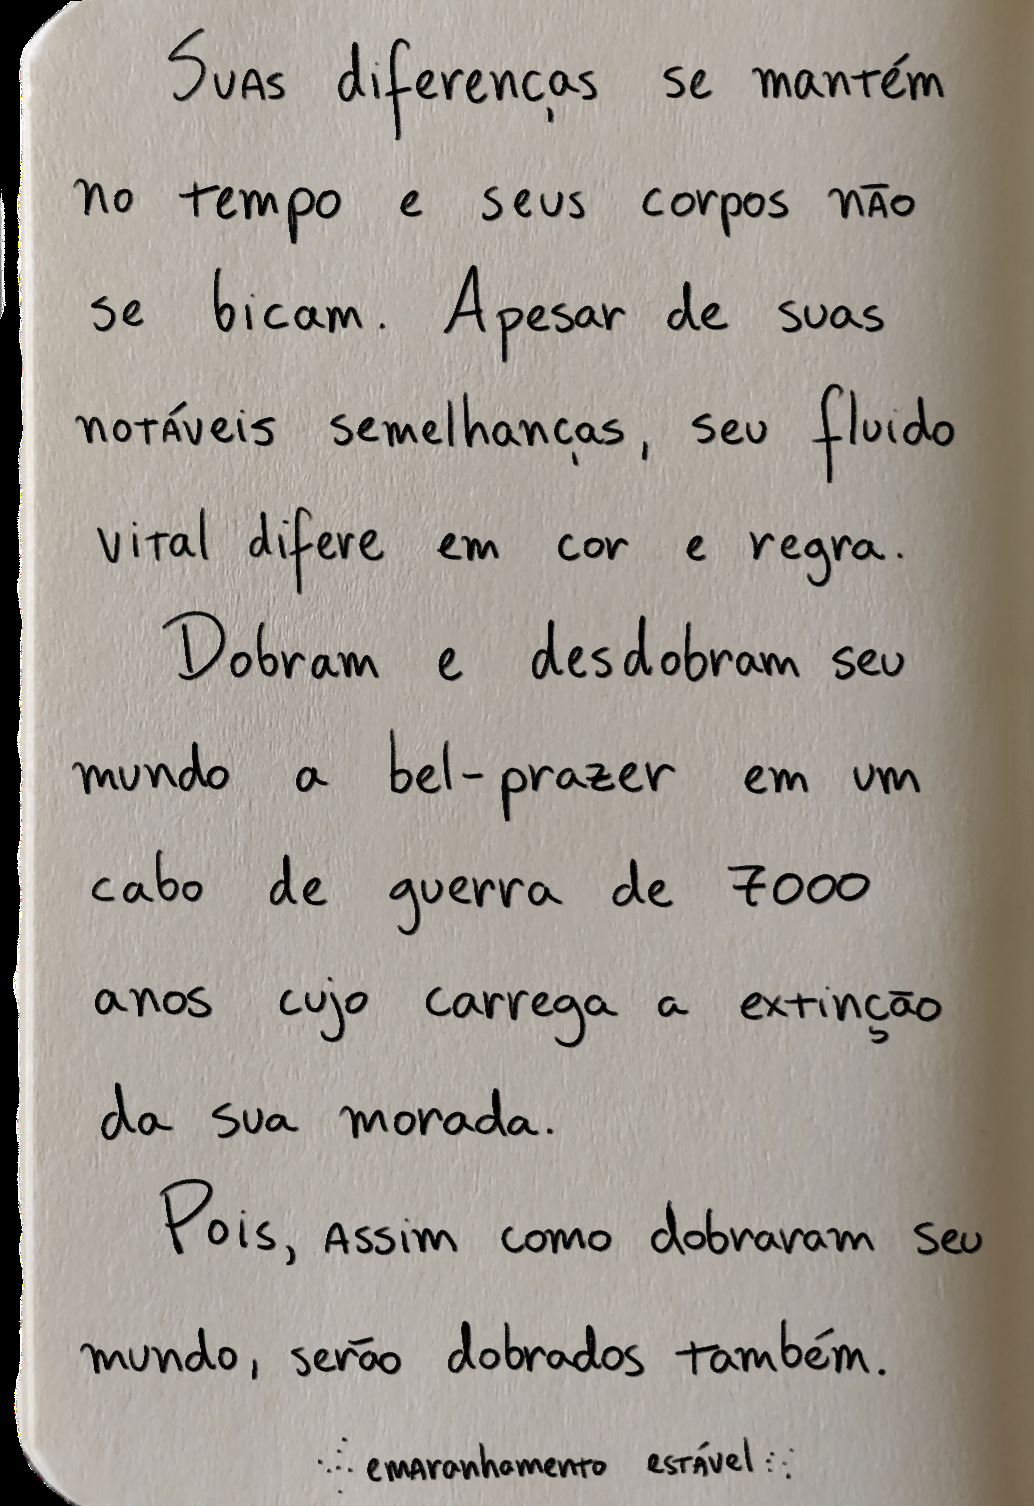 Suas diferenças se mantém
no tempo e seus corpos não
se bicam. Apesar de suas
notáveis semelhanças, seu fluido
vital difere em cor e regra.
Dobram e desdobram seu
mundo a bel-prazer em um
cabo de guerra de 7000
anos cujo carrega a extinção
da sua morada.
Pois, assim como dobraram seu
mundo, serão dobrados também.
emaranhamento estável